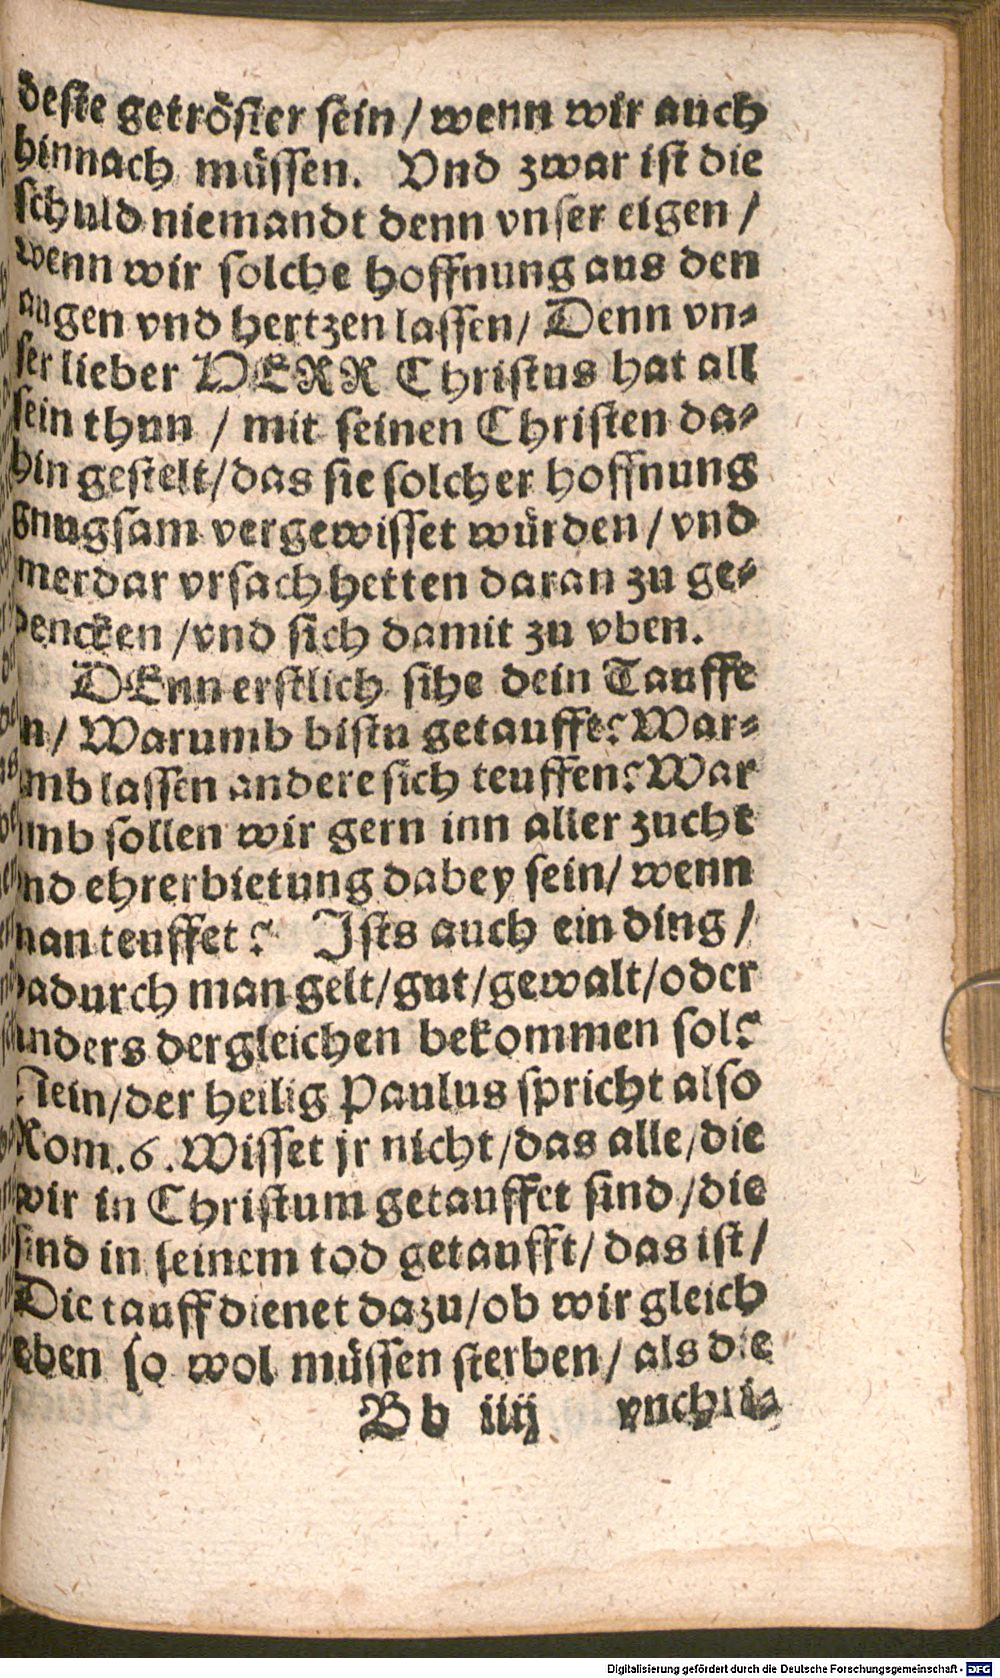 deste getröster sein / wenn wir auch
hinnach müssen. Vnd zwar ist die
schuld niemandt denn vnser eigen /
wenn wir solche hoffnung aus den
augen vnd hertzen lassen / Denn vn-
ser lieber HERR Christus hat all
sein thun / mit seinen Christen da-
hin gestelt / das sie solcher hoffnung
gnugsam vergewisset würden / vnd
merdar vrsach hetten daran zu ge-
dencken / vnd sich damit zu vben.
DEnn erstlich sihe dein Tauffe
n / Warumb bistu getaufft? War-
mb lassen andere sich teuffen? War
umb sollen wir gern inn aller zucht
vnd ehrerbietung dabey sein / wenn
man teuffet? Ists auch ein ding /
dadurch man gelt / gut / gewalt / oder
anders dergleichen bekommen sol?
Nein / der heilig Paulus spricht also
Rom. 6. Wisset jr nicht / das alle / die
wir in Christum getauffet sind / die
sind in seinem tod getaufft / das ist /
Die tauff dienet dazu / ob wir gleich
eben so wol müssen sterben / als die
Bb iiij vnchri-
Digitalisierung gefördert durch die Deutsche Forschungsgemeinschaft - DFG